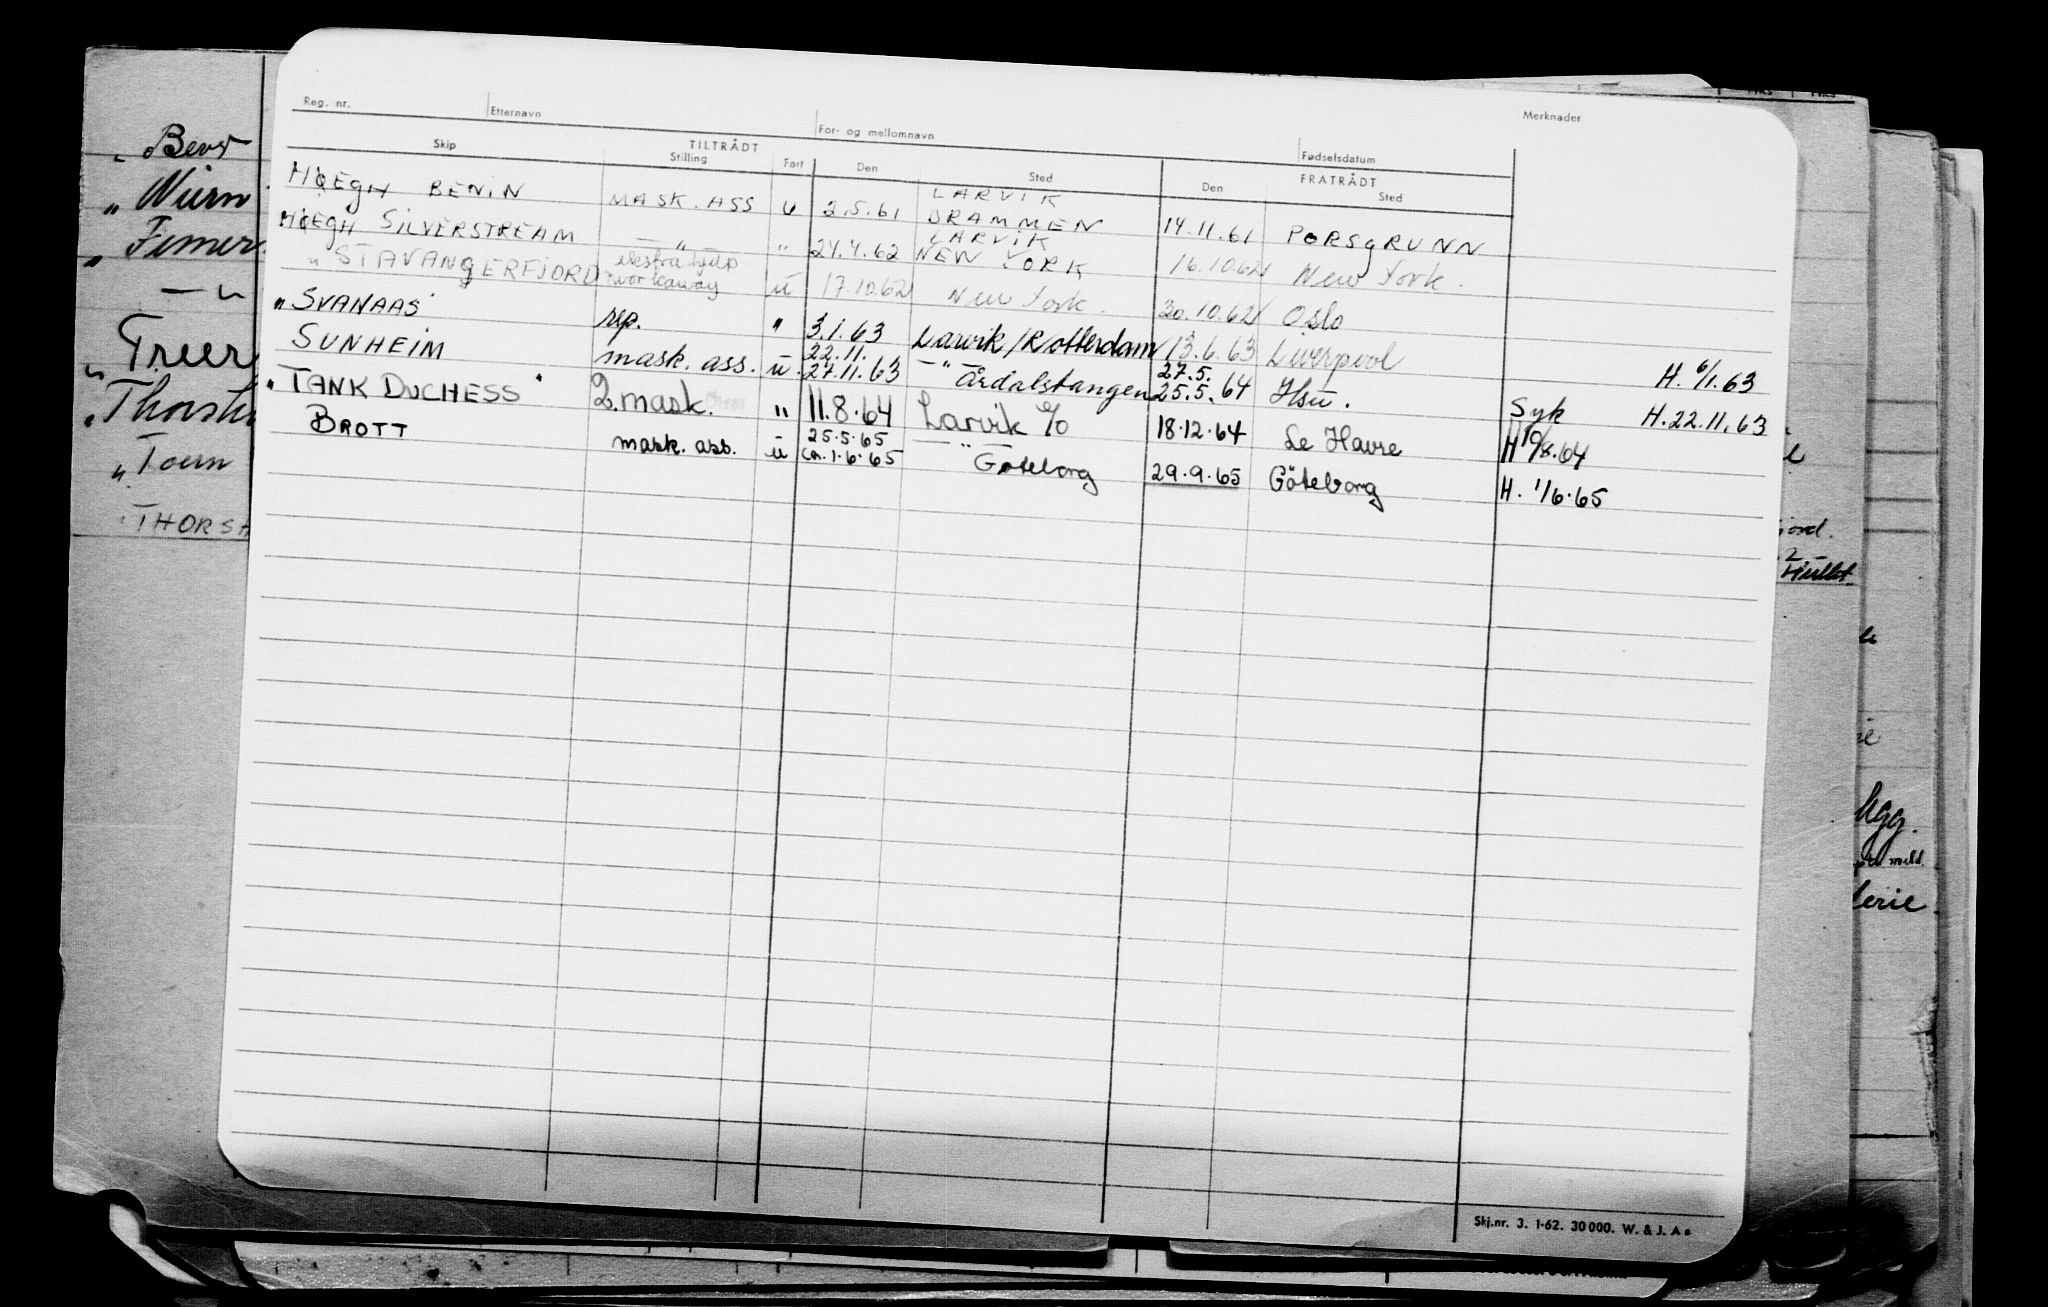 Reg. nr. Etternavn For- og mellomnavn Fødselsdatum Merknader
TILTRÅDT FRATRÅDT
Skip Stilling Fart Den Sted Den Sted
HØEGH BENIN MASK. ASS U 2.5.61 LARVIK DRAMMEN 14.11.61 PORSGRUNN
HØEGH SILVERSTREAM — " — " 24.4.62 LARVIK NEW YORK 16.10.62 New York.
" STAVANGERFJORD ekstrahjelp workaway u 17.10.62 New York. 30.10.62 Oslo
"SVANAAS" rep. " 3.1.63 Larvik/Rotterdam 13.6.63 Liverpool H. 6/1.63
SUNHEIM mask. ass. u. 22.11. 27.11.63 — " — Årdalstangen 27.5. 25.5.64 Hsu. Syk H. 22.11.63
"TANK DUCHESS" 2. mask. " 11.8.64 Larvik 18.12.64 Le Havre H 10/8.64
BROTT mask. ass. u 25.5.65 ca. 1.6.65 — " — Göteborg 29.9.65 Göteborg H. 1/6.65
Skj.nr. 3. 1-62. 30 000. W. & J. A s
" Bevr
" Nürn
" Femer
— " —
" Trier
" Thorsh
" Toern
" THORSH